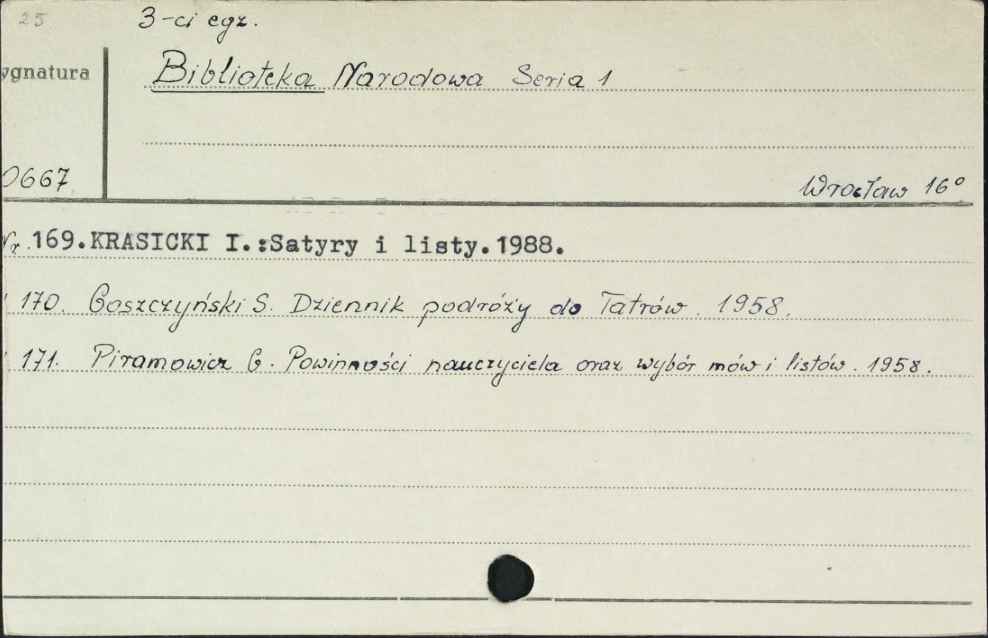 25
3-ci egz.
ygnatura
Biblioteka Narodowa Seria 1
0667
Wrocław 16°
Nr.169.KRASICKI I.:Satyry i listy.1988.
170. Goszczyński S. Dziennik podróży do Tatrów. 1958.
171. Piramowicz G. Powinności nauczyciela oraz wybór mów i listów. 1958.